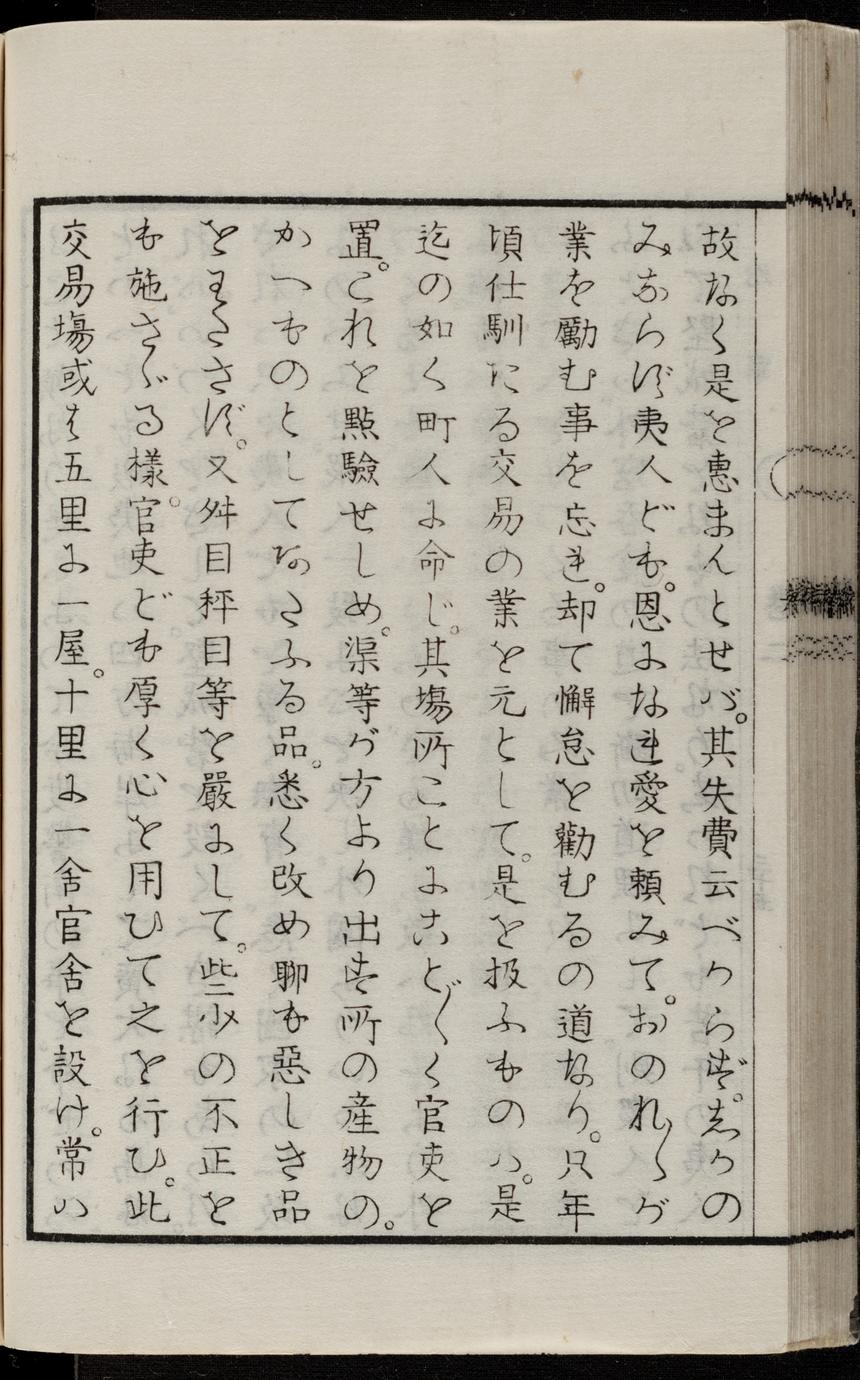 故なく是を惠まんとせバ。其失費云べからず。しかの
みならず夷人ども。恩になれ愛を頼みて。おのれ〳〵が
業を勵む事を忘れ。却て懈怠を勸むるの道なり。只年
頃仕馴たる交易の業を元として。是を扱ふものハ。是
迄の如く町人に命じ。其塲所ことにこと〴〵く官吏を
置。これを點驗せしめ。渠等が方より出す所の産物の。
かへものとしてあたふる品。悉く改め聊も惡しき品
をわたさず。又舛目秤目等を嚴にして。些少の不正を
も施さゞる樣。官吏ども厚く心を用ひて之を行ひ。此
交易塲或は五里に一屋。十里に一舎官舎を設け。常ハ